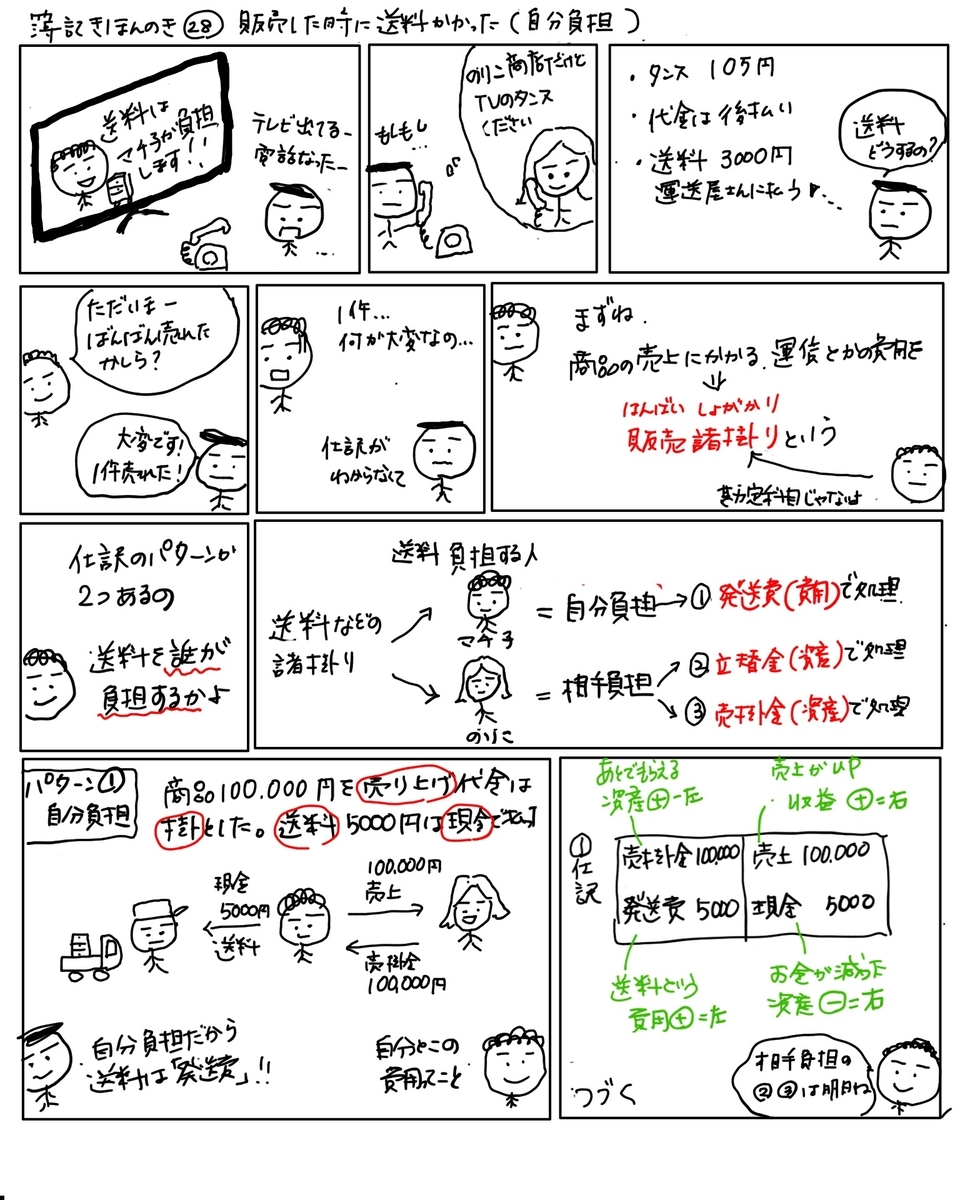 簿記きほんのき㉘ 販売した時に送料かかった(自分負担)
送料は
マチ子が負担
します!!
テレビ出てる〜
電話なった〜
もしもし
のりこ商店だけど
TVのタンス
ください
・タンス 10万円
・代金は後払い
・送料 3000円
運送屋さんに払う
送料
どうするの?
ただいまー
ばんばん売れた
かしら?
大変です!
1件売れた!
1件...
何が大変なの...
仕訳が
わからなくて
まずね、
商品の売上にかかる、運賃とかの費用を
はんばい しょがかり
販売諸掛りという
勘定科目じゃないよ
仕訳のパターンが
2つあるの
送料を誰が
負担するかよ
送料負担する人
送料などの
諸掛り
マチ子
= 自分負担→① 発送費(費用)で処理
のりこ
= 相手負担
② 立替金(資産)で処理
③ 売掛金(資産)で処理
パターン①
自分負担
商品100.000円を売り上げ代金は
掛とした。送料5000円は現金で払う
現金
5000円
送料
100.000円
売上
売掛金
100,000円
自分負担だから
送料は「発送費」!!
自分とこの
費用ってこと
あとでもらえる
資産⊕=左
売上がUP
収益⊕=右
①仕訳
売掛金 100,000 売上 100.000
発送費 5000 現金 5000
送料という
費用⊕=左
お金が減った
資産⊖=右
相手負担の
②③は明日ね
つづく